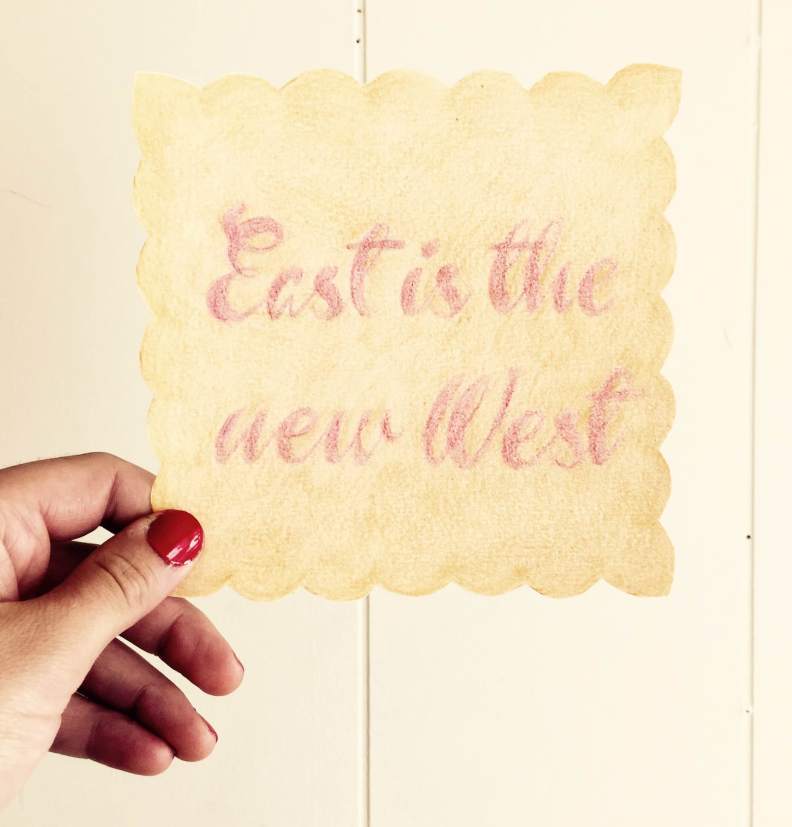 East is the
new West